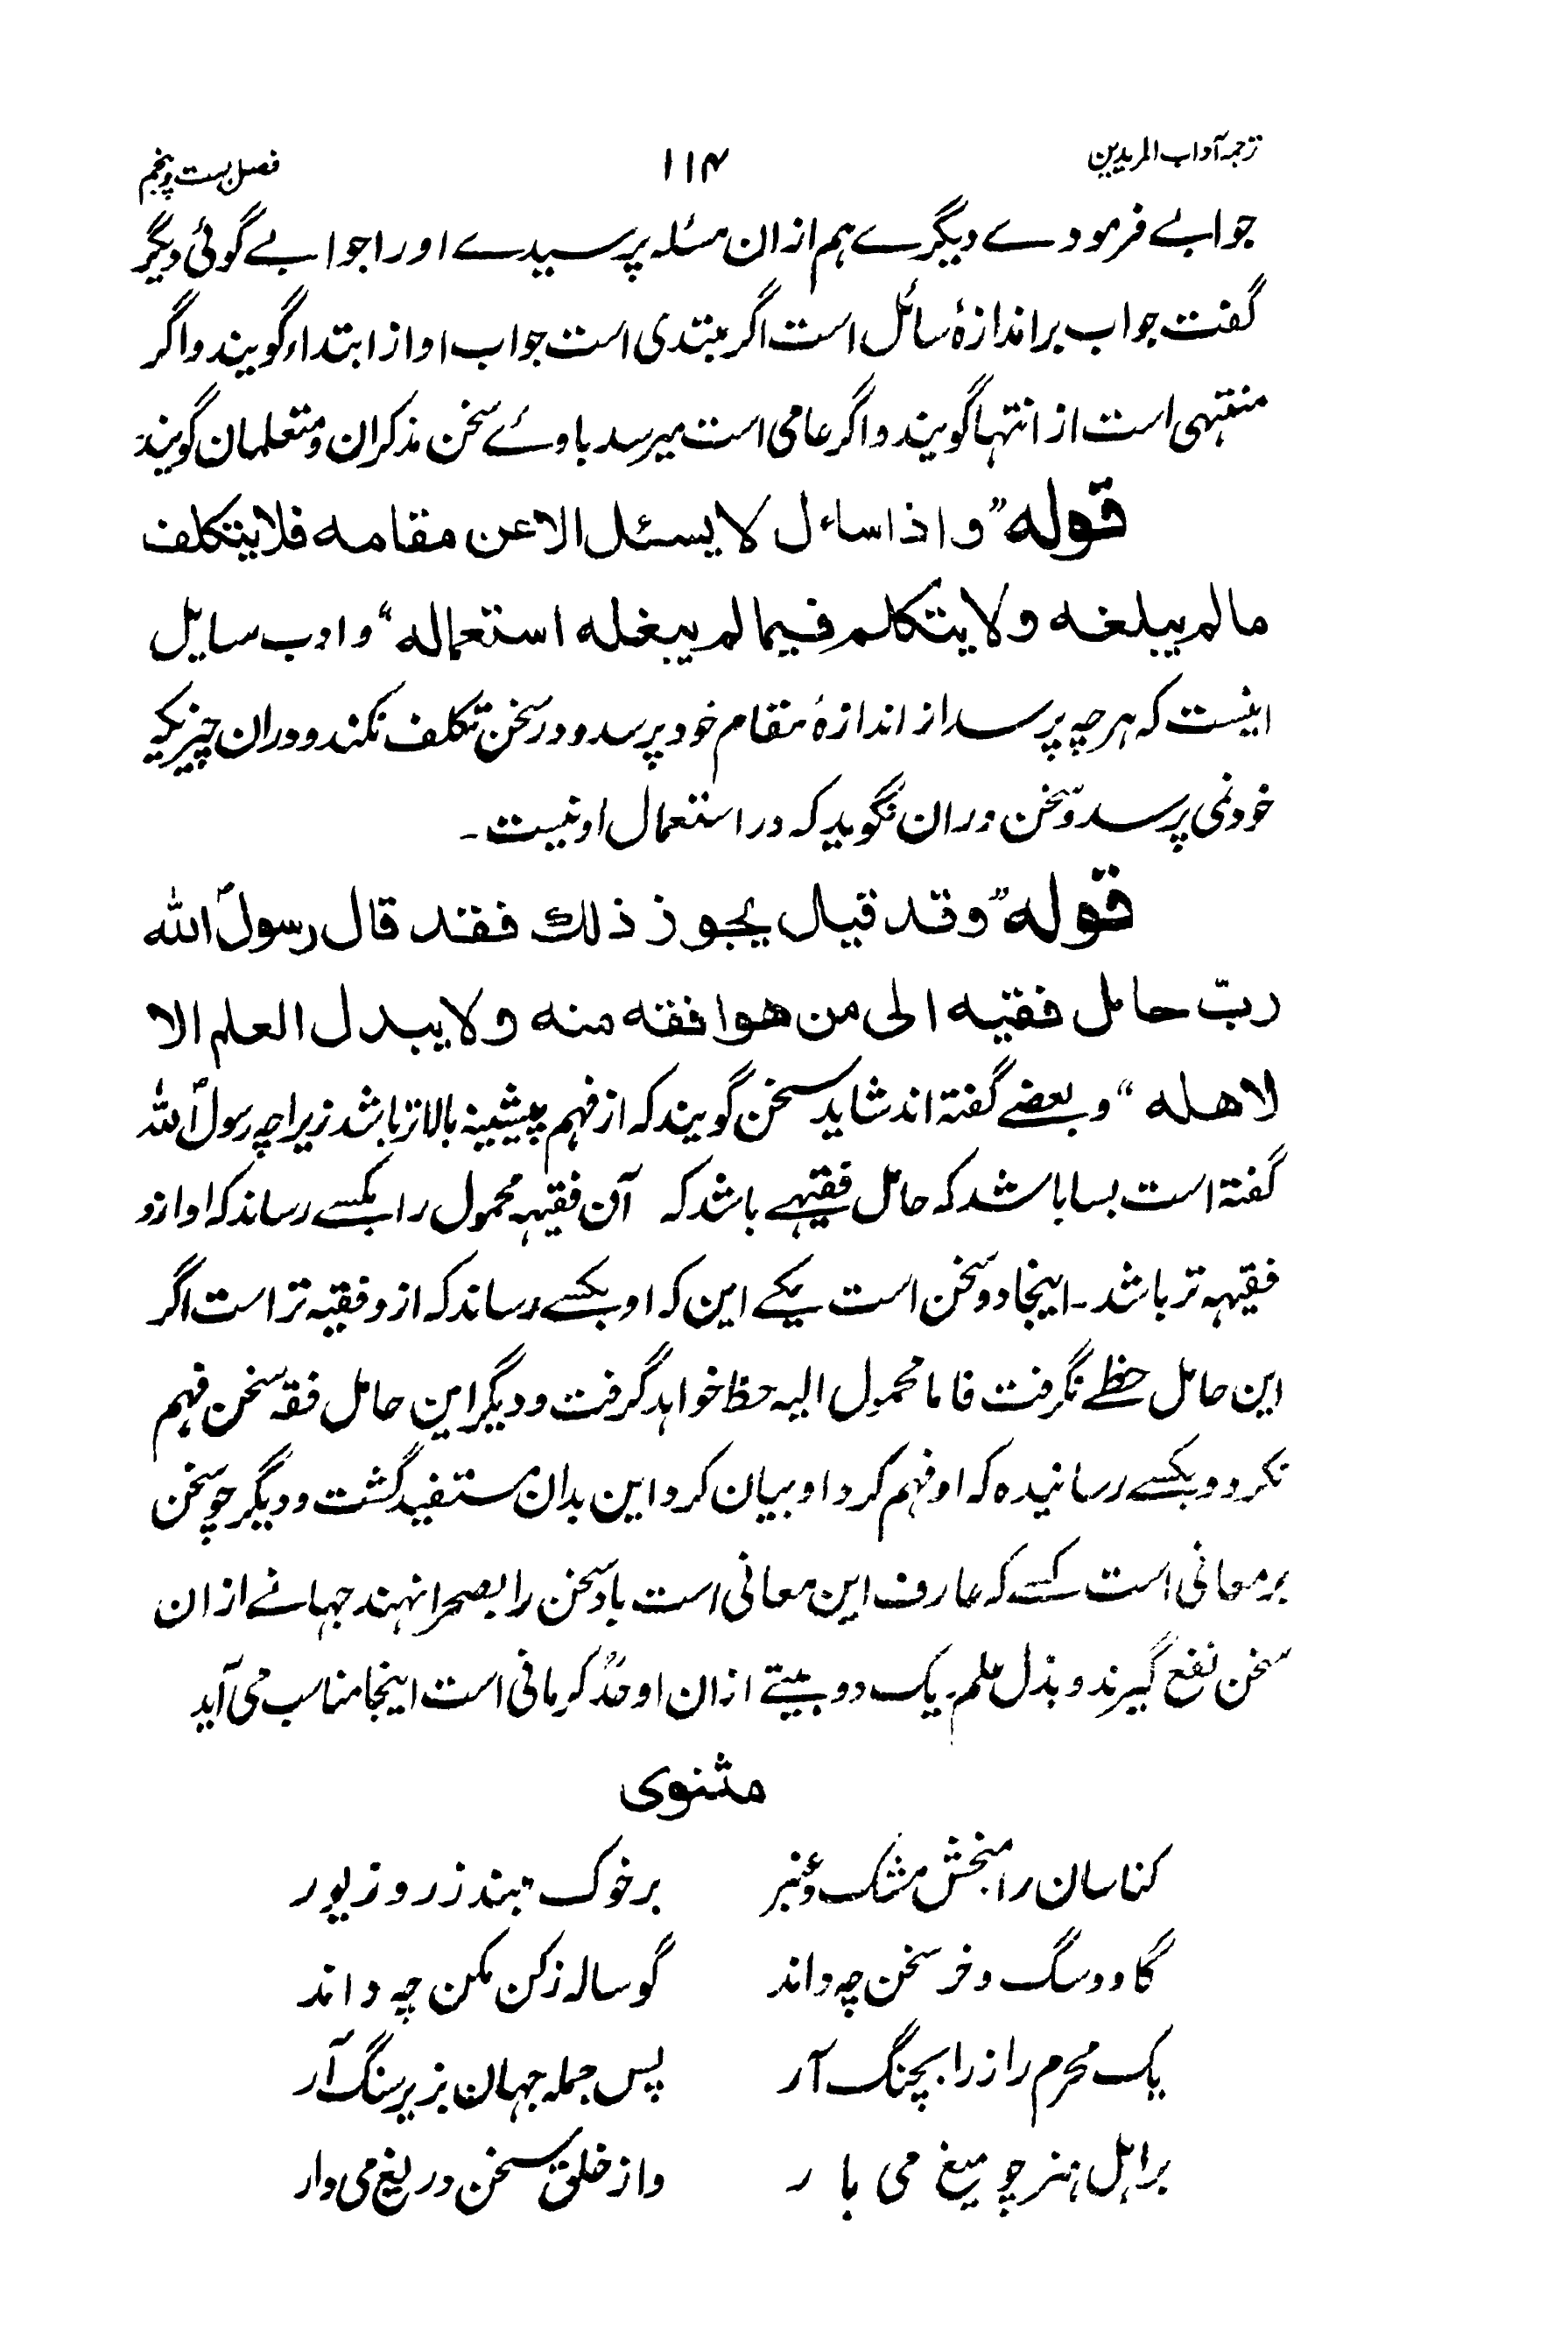 ترجمہ آداب المریدین
۱۱۴
فصل بست و پنجم
جوابے فرمودے دیگرے ہم ازان مسئلہ پرسیدے اورا جوابے گوئی دیگر
گفت جواب بر اندازۂ سائل است اگر مبتدی است جواب او از ابتداء گویند و اگر
منتہی است از انتہا گویند و اگر عامی است میرسد باوے سخن مذکران و متعلمان گویند
قولہ ”و اذا ساءل لا یسئل الا عن مقامہ فلا یتکلف
ما لم یبلغہ ولا یتکلم فیما لم یبغلہ استعمالہ“ و ادب سایل
اینست کہ ہرچہ پرسد از اندازۂ مقام خود پرسد و در سخن تکلف نکند و دران چیزیکہ
خود نمی پرسد و سخن دران نگوید کہ در استعمال او نیست ۔
قولہ ”وقد قیل یجوز ذلك فقد قال رسولؐ اللہ
ربّ حامل فقیہ الی من ھو افقہ منہ ولا یبدل العلم الا
لاھلہ“ و بعضے گفتہ اند شاید سخن گویند کہ از فہم پیشینہ بالاتر باشد زیراچہ رسولؐ اللہ
گفتہ است بسا باشد کہ حامل فقیہے باشد کہ آن فقیہہ محمول را بکسے رساند کہ او ازو
فقیہہ تر باشد۔ اینجا دو سخن است یکے این کہ او بکسے رساند کہ ازو فقیہ تر است اگر
این حامل حظے نگرفت فاما محمول الیہ حظ خواہد گرفت و دیگر این حامل فقہ سخن فہم
نکرد و بکسے رسانیدہ کہ او فہم کرد او بیان کرد این بدان مستفید گشت و دیگر چو سخن
بر معانی است کسے کہ عارف این معانی است باد سخن را بصحرا نہند جہانے ازان
سخن نفع گیرند و بذل علم۔ یک دو بیتے ازان اوحدؒ کرمانی است اینجا مناسب می آید
مثنوی
کناسان را مبخش مشک و عنبر      بر خوک مبند زر و زیور
گاو و سگ و خر سخن چہ داند      گوسالہ ز کن مکن چہ داند
یک محرم راز را بچنگ آر      پس جملہ جہان بزیر سنگ آر
بر اہل ہنر چو میغ می بار      و از خلق سخن دریغ می دار